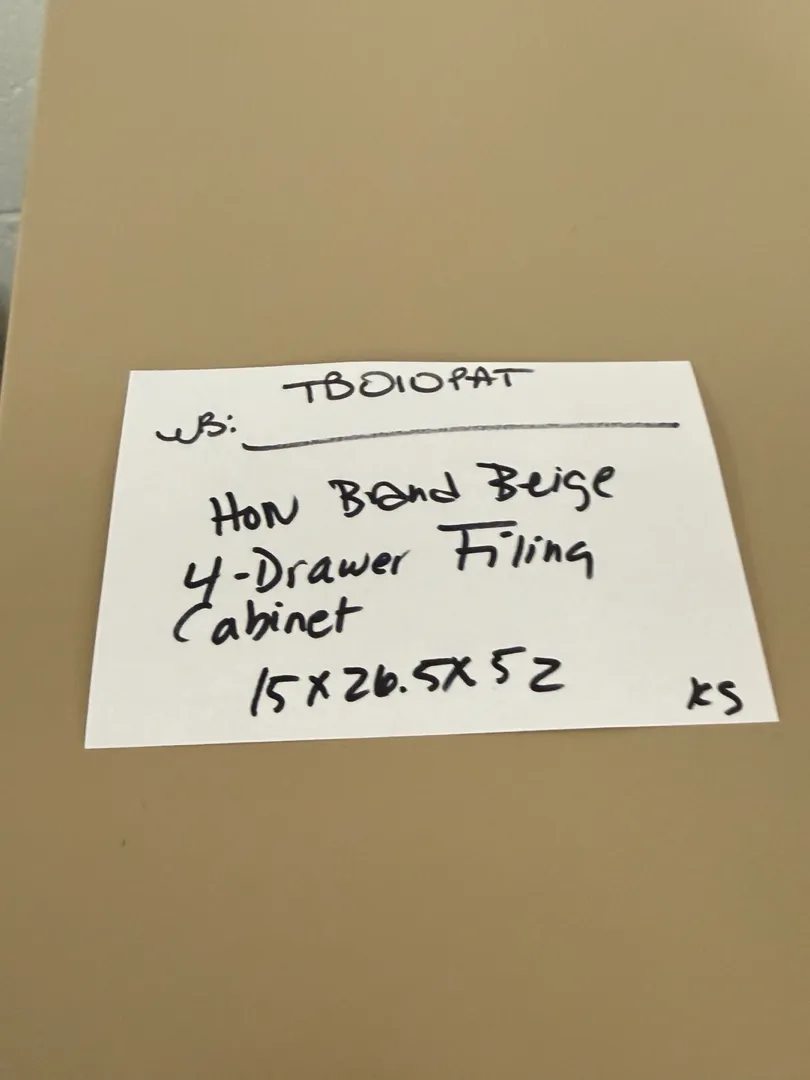 TBO10PAT
WB:
HON Brand Beige
4-Drawer Filing
Cabinet
15 x 26.5 x 52
KS